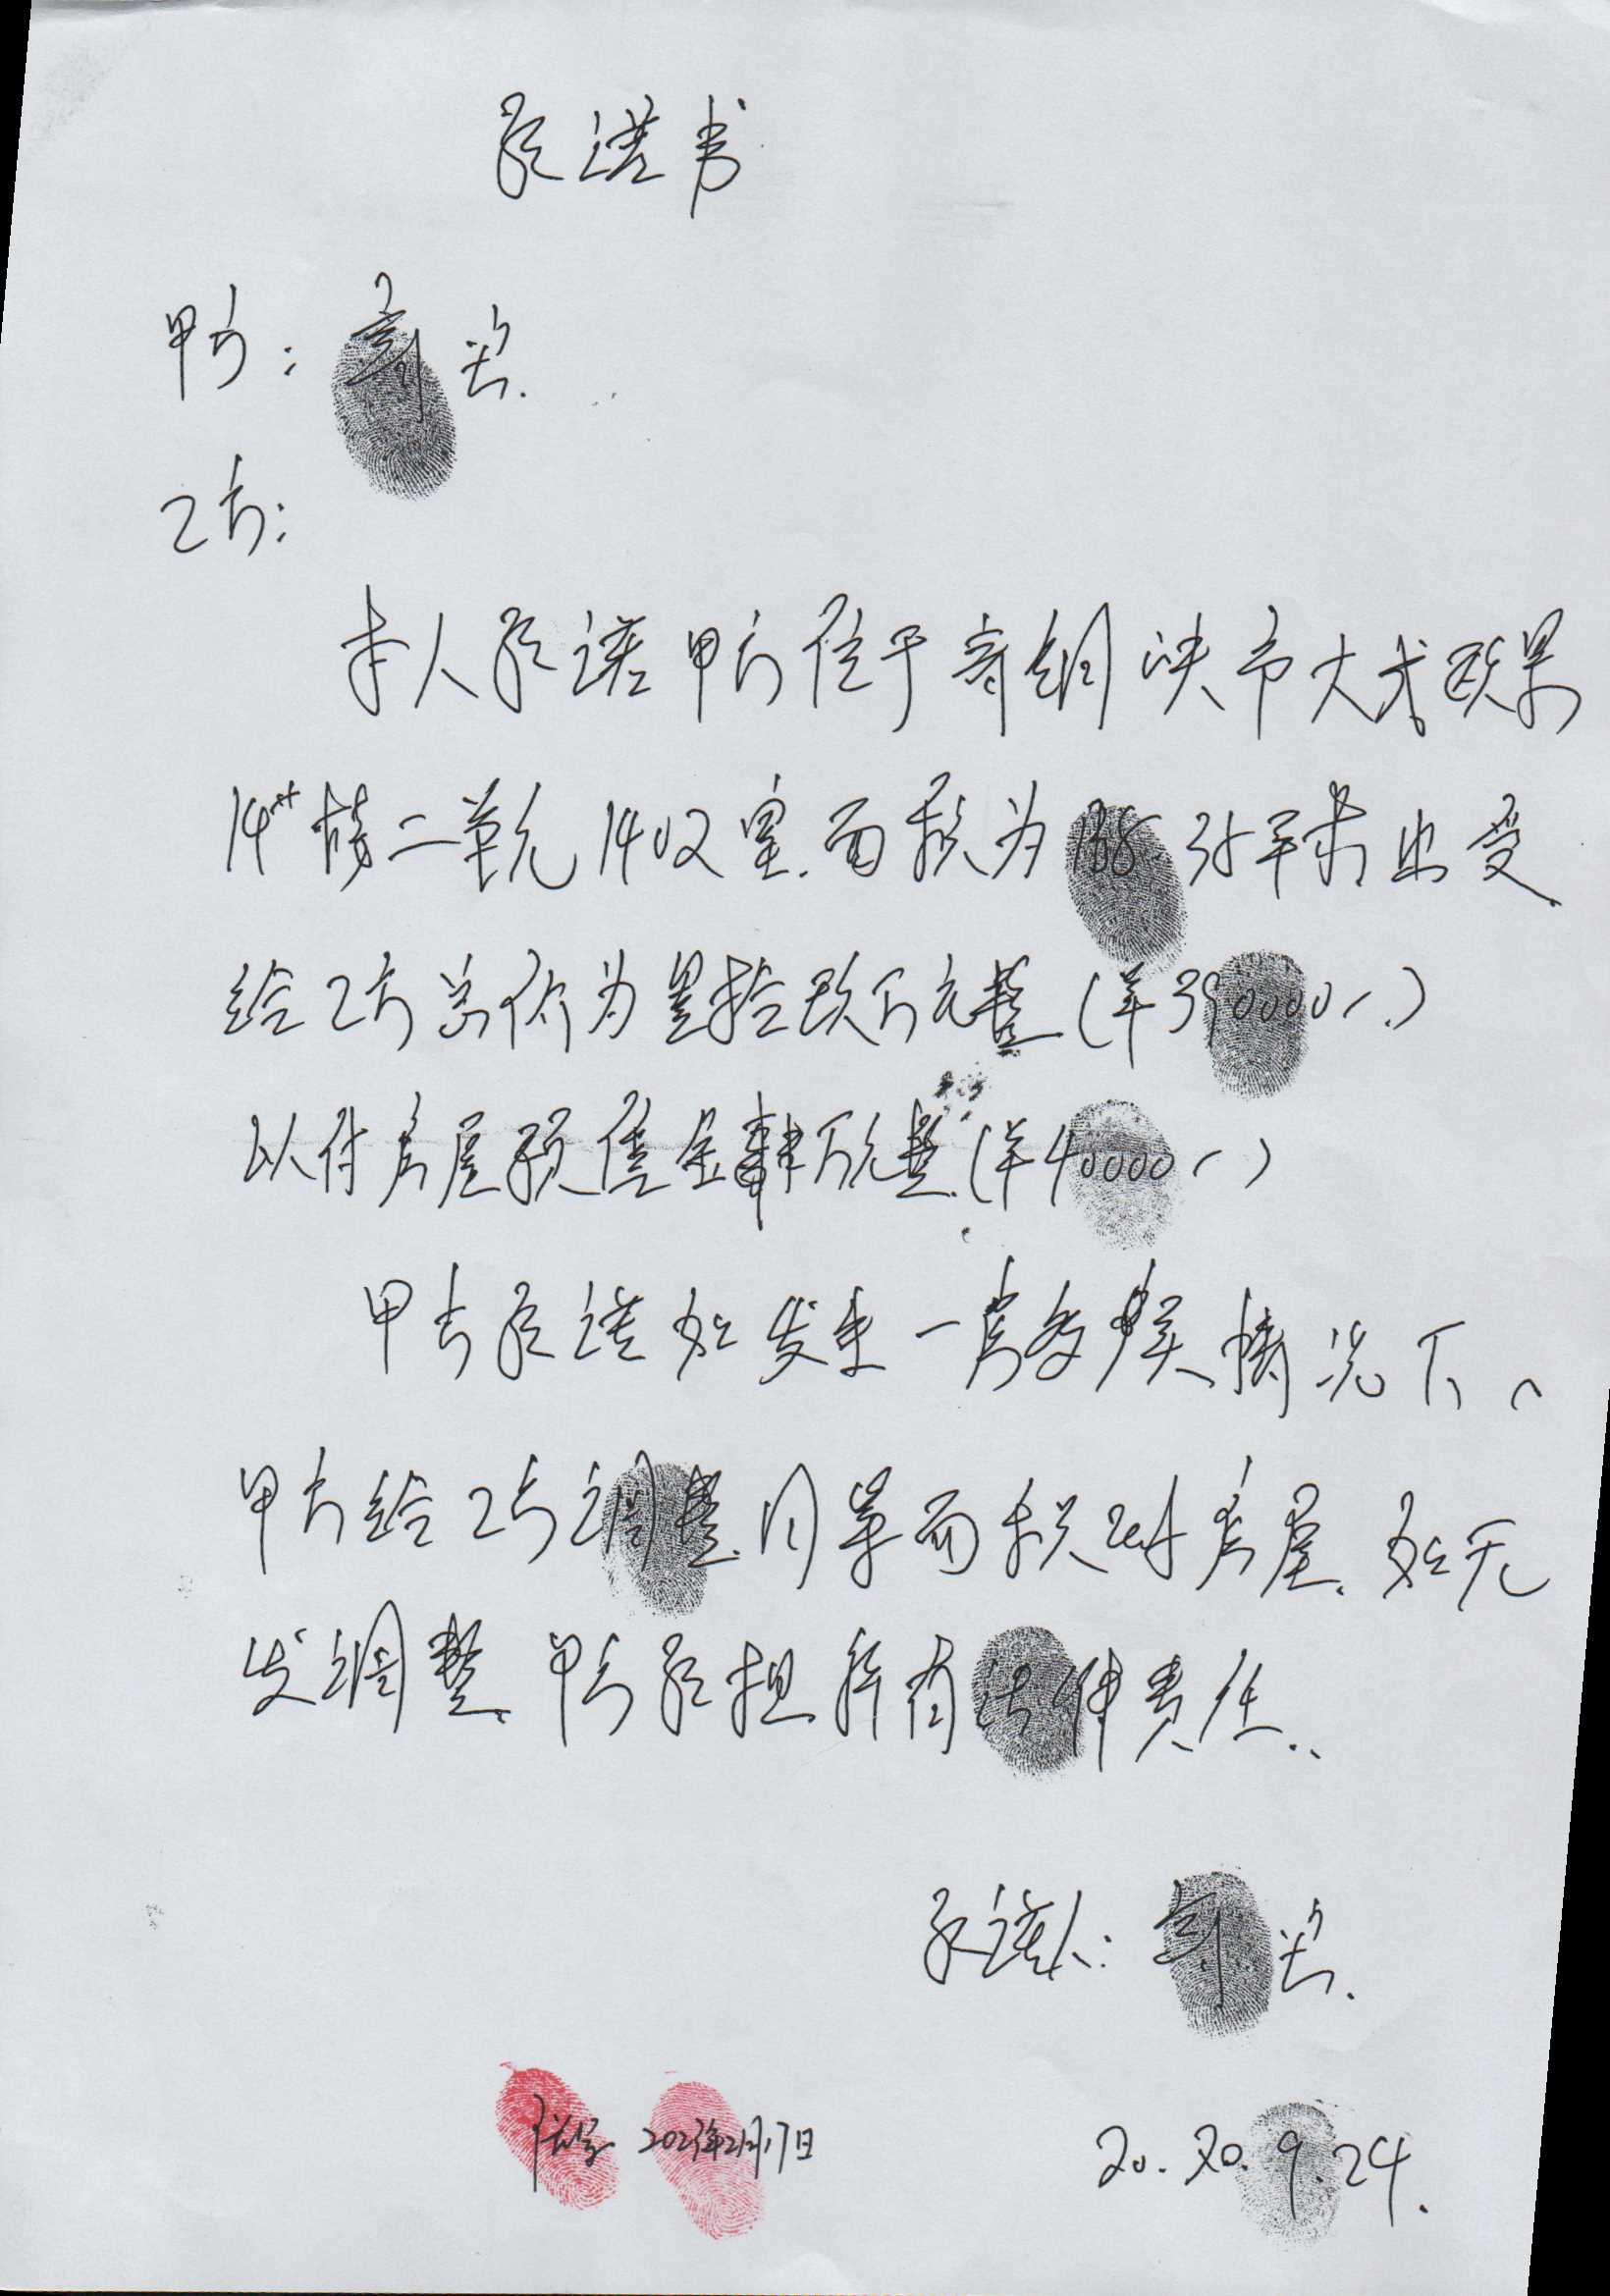 承诺书
甲方：
乙方：
本人承诺甲方位于青铜峡市大式欧景
14#楼二单元1402室.面积为138.35平米出受
给乙方总价为叁拾玖万元整(羊390000-.)
以付房屋预售金肆万元整.(羊40000-)
甲方承诺如发生一房多卖情况下、
甲方给乙方调整.同等面积对房屋.如无
发调整.甲方承担所有法律责任..
承诺人:
2023年2月17日
20.20.9.24.